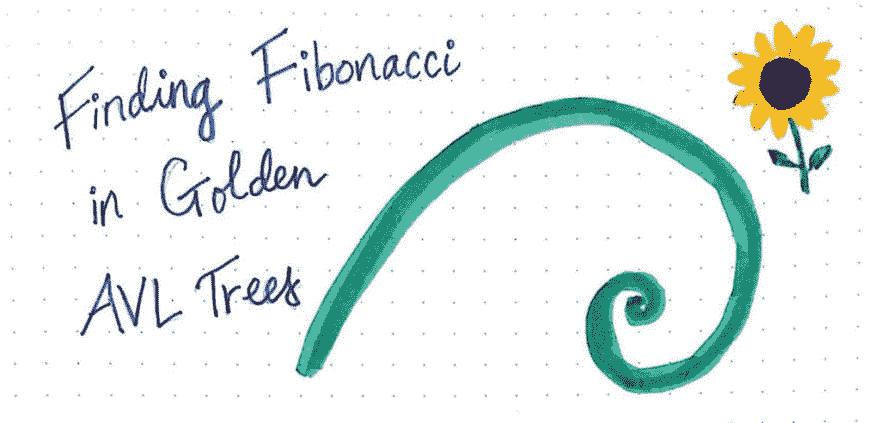 Finding Fibonacci
in Golden
AVL Trees